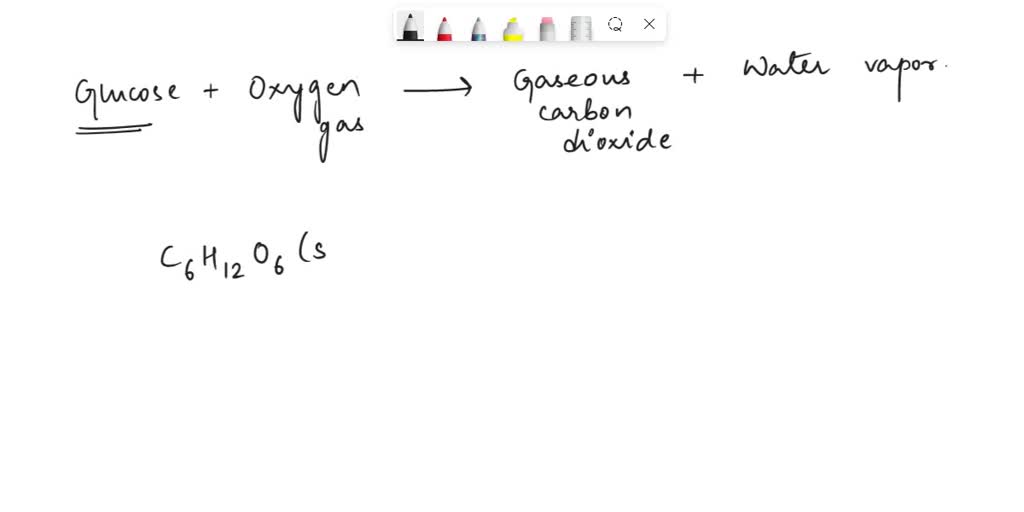 Glucose + Oxygen gas ⟶ Gaseous carbon dioxide + Water vapor.
C₆H₁₂O₆ (s